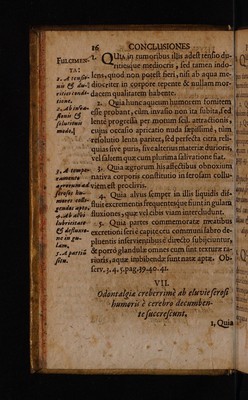 16 CONCLUSIONES
FULCIMEN-
TA:
1. A tensio-
nis & du-
ritiei condi-
tione,
2. Ab inso-
lentis &
solutionis
modo,
3. A tempe-
ramento
ægrorum ad
serosos hu-
mores colli-
gendos apto,
4. Ab alvi
lubricitate
& defluxio-
ne in gu-
lam,
5. A partiũ
situ.
1. Quia in tumoribus illis adest tensio du-
ritiesque mediocris, sed tamen indo-
lens, quod non potest fieri, nisi ab aqua me-
diocriter in corpore repente & nullam mor-
dacem qualitatem habente.
2. Quia hunc aqueum humorem fomitem
esse probant, cùm invasio non ita subita, sed
lentè progressa per motum scil. attractionis,
cujus occasio apricatio nuda
resolutio lenta pariter, sed perfecta citra reli-
quias sive puris, sive alterius materiæ durioris,
vel saltem quæ cum plurima salivatione fiat.
3. Quia ægrorum his affectibus obnoxium
nativa corporis constitutio in serosam collu-
viem est proclivis.
4. Quia alvus semper in illis liquidis dif-
fluit excrementis frequentesque fiunt in gulam
fluxiones, quæ vel cibis vaniis intercluduntur.
5. Quia partes commemoratæ meatibus
excretioni seri è capite, cum communi labro de-
pluentis inservientibus è directo subjiciuntur,
& porrò glandulæ omnes cum sint ejusmodi ra-
ritatis, aquæ imbibendæ sunt natæ aptæ. Ob-
serv. 3. 4. 5. pag. 39. 40. 41.
VII.
Odontalgia creberrimè ab eluvie serosi
humoris è cerebro decumben-
te succrescunt.
1. Quia